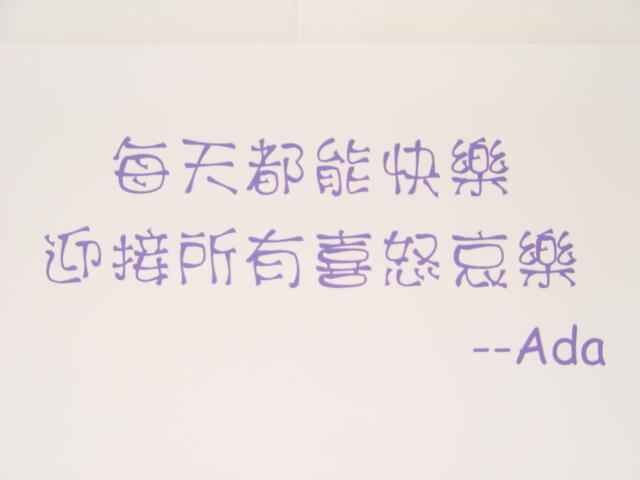 每天都能快樂
迎接所有喜怒哀樂
--Ada